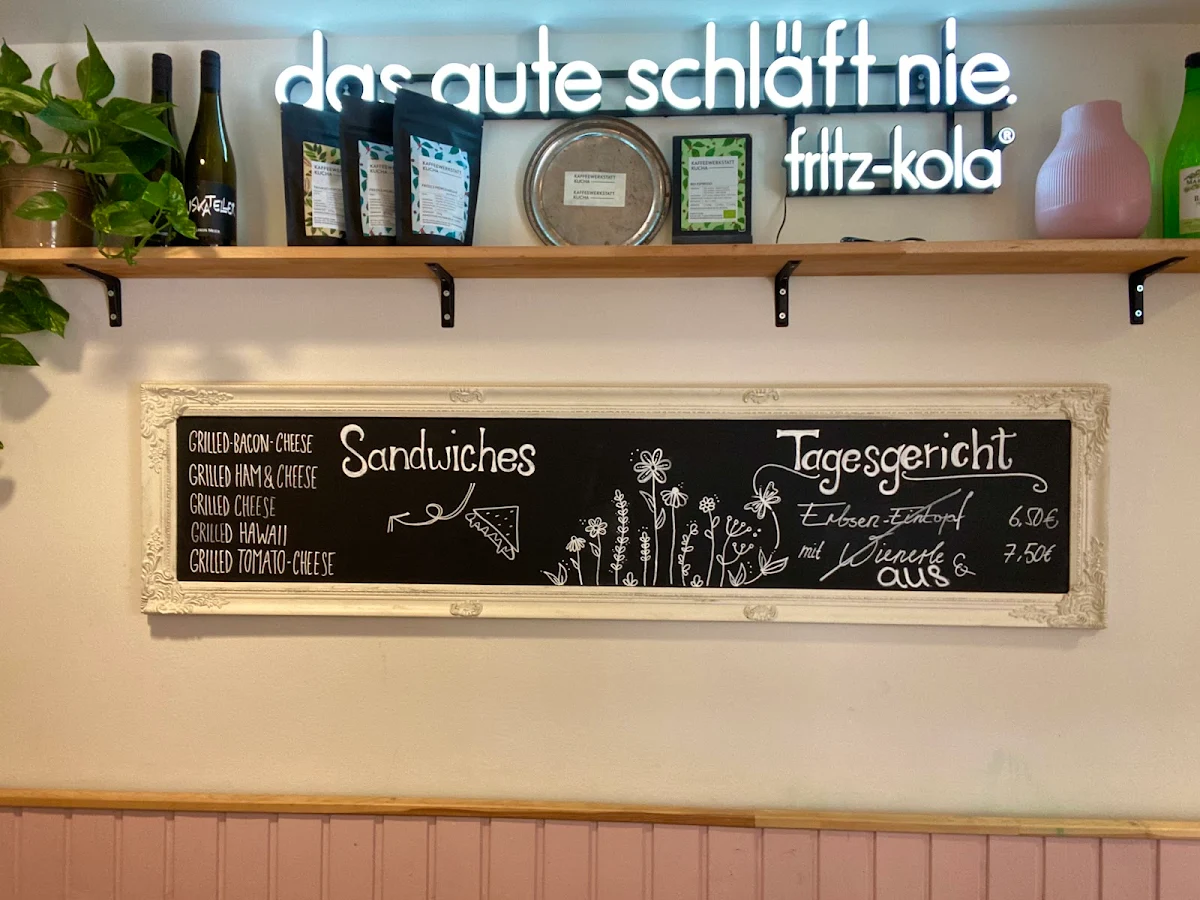 das gute schläft nie.
fritz-kola®
KAFFEEWERKSTATT
KUCHA
KAFFEEWERKSTATT
KUCHA
KAFFEEWERKSTATT
KUCHA
KAFFEEWERKSTATT
KUCHA
KAFFEEWERKSTATT
KUCHA
Sandwiches
GRILLED-BACON-CHEESE
GRILLED HAM & CHEESE
GRILLED CHEESE
GRILLED HAWAII
GRILLED TOMATO-CHEESE
Tagesgericht
Erbsen-Eintopf 6,50€
mit Wienerle 7,50€
aus